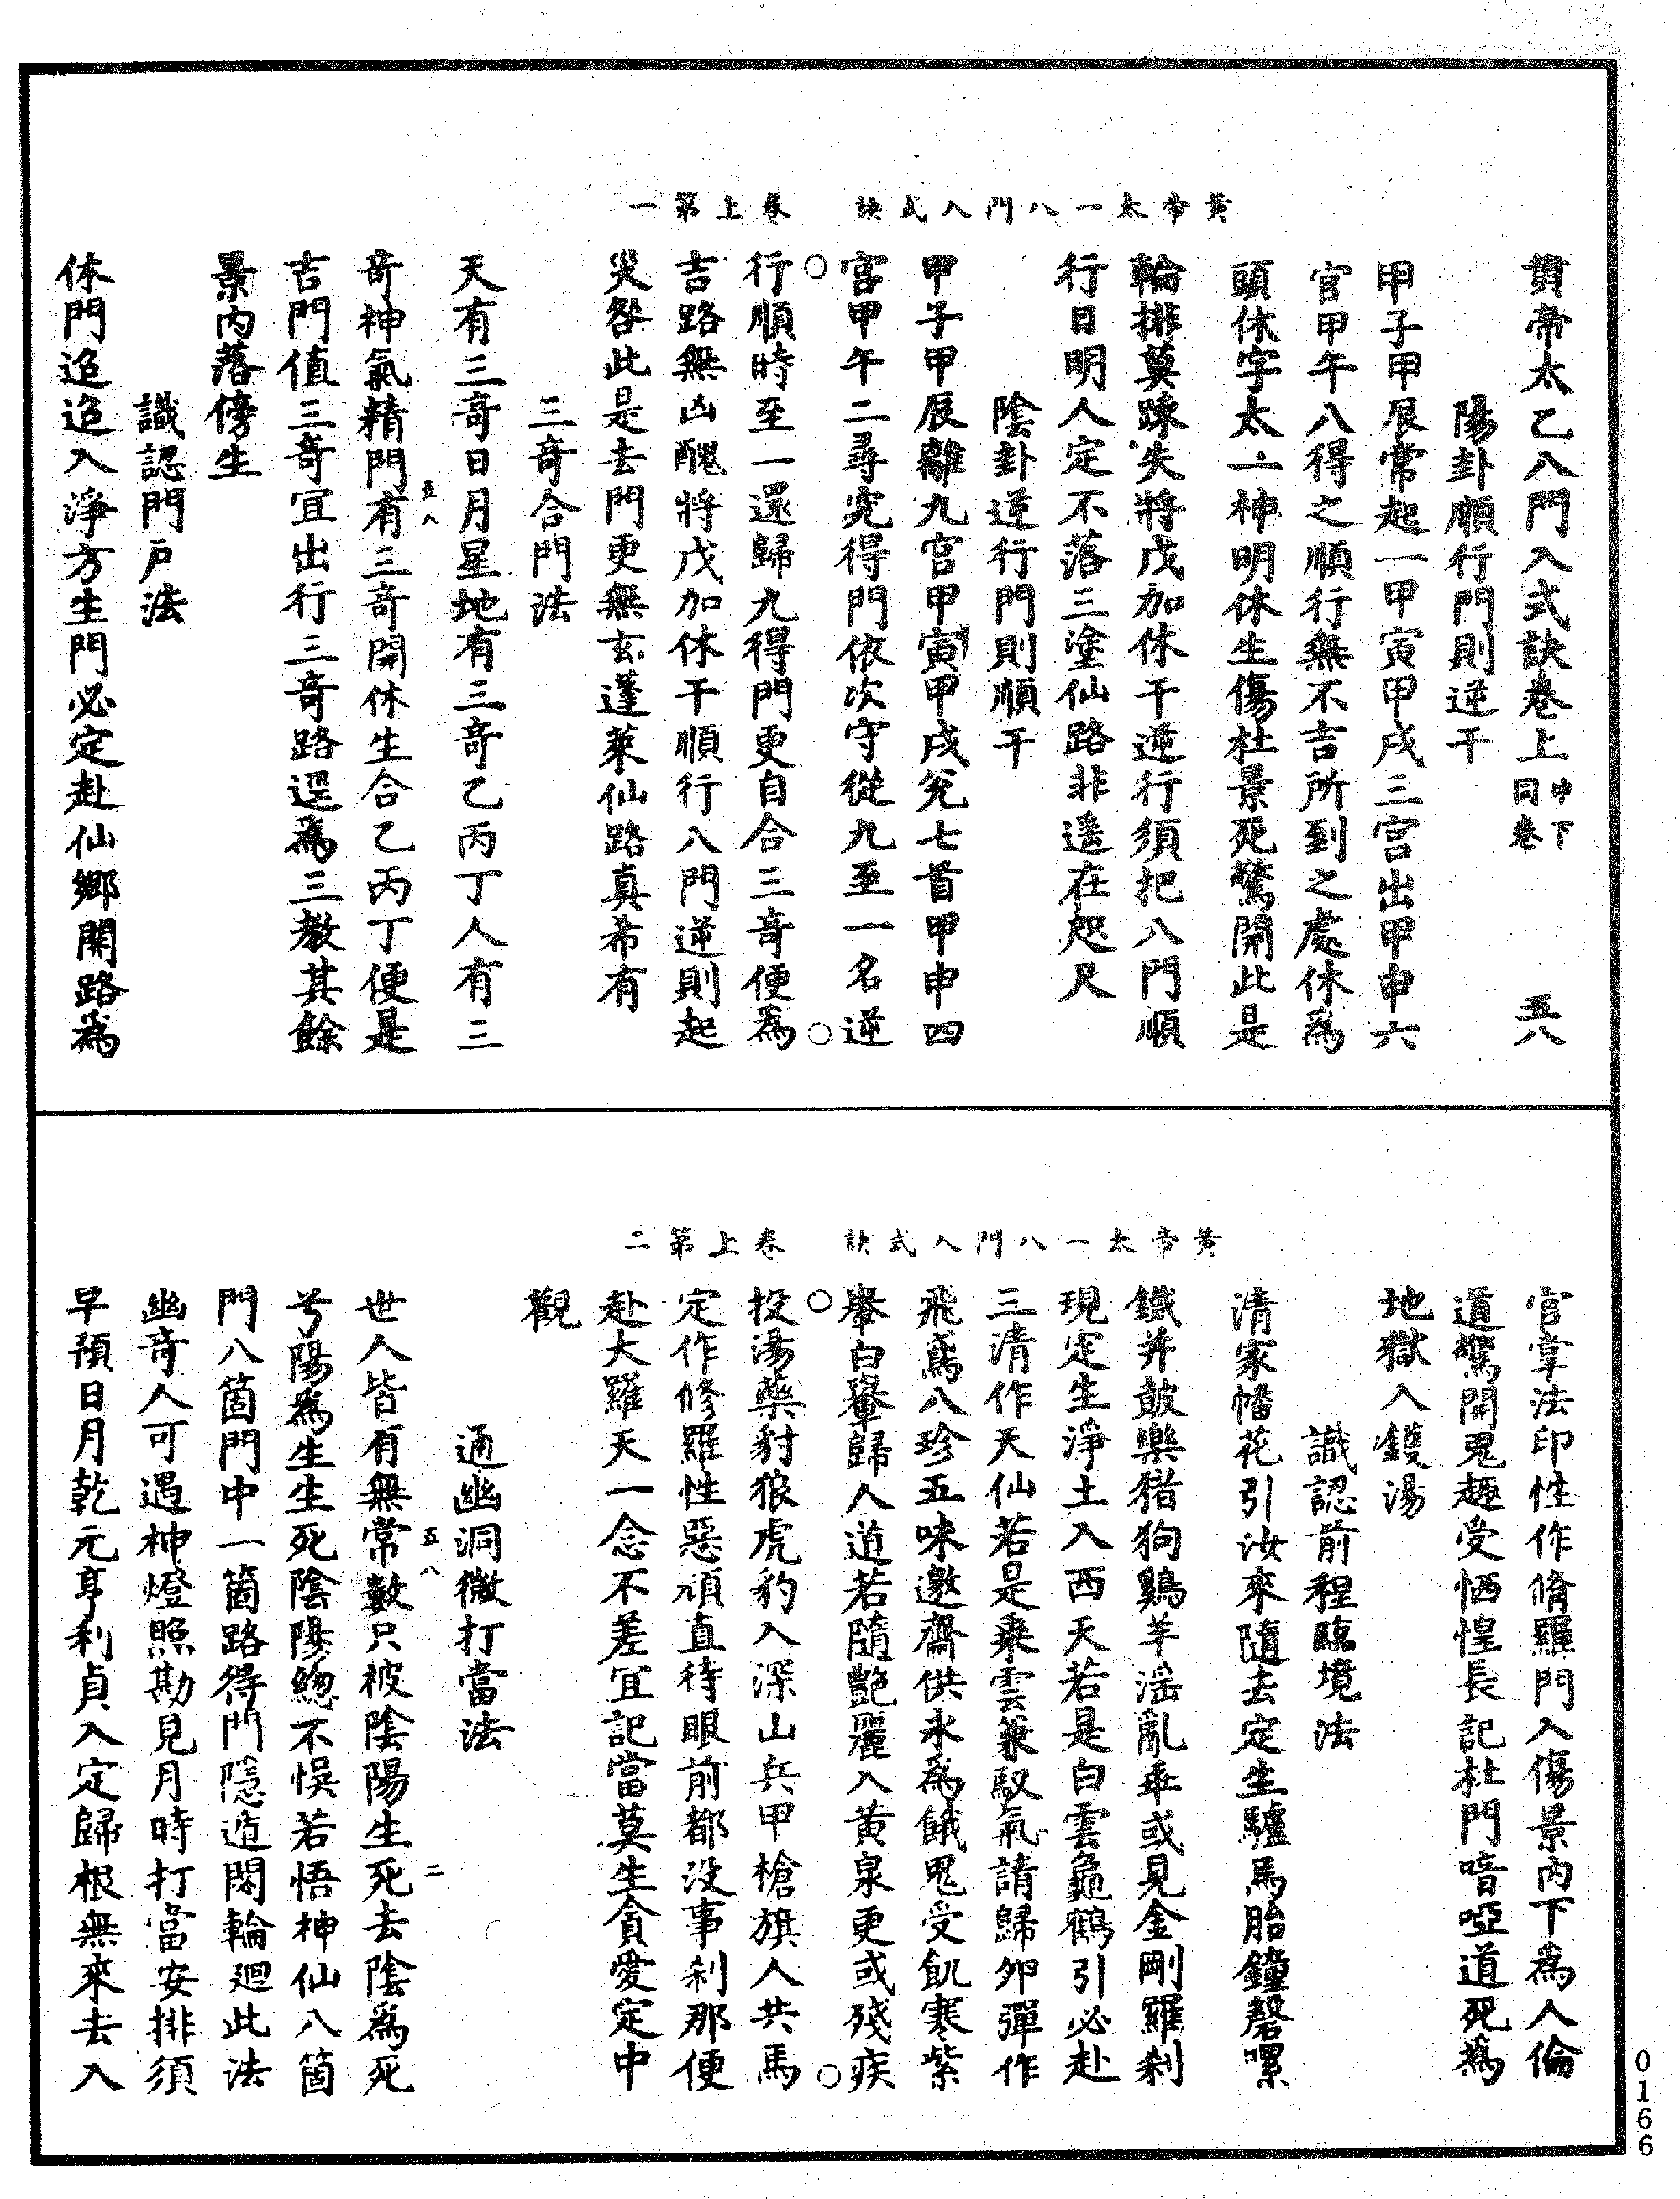 黃帝太一八門入式訣　卷上第一
黃帝太乙八門入式訣卷上中下同卷　五八
陽卦順行門則逆干
甲子甲辰常起一甲寅甲戌三宮出甲申六
宮甲午八得之順行無不吉所到之處休為
頭休字太一神明休生傷杜景死驚開此是
輪排莫踈失將戊加休干逆行須把八門順
行日明人定不落三塗仙路非遙在咫尺
陰卦逆行門則順干
甲子甲辰離九宮甲寅甲戌兊七首甲申四
宮甲午二尋究得門依次守從九至一名逆
行順時至一還歸九得門更自合三奇便為
吉路無凶醜將戊加休干順行八門逆則起
災咎此是去門更無玄蓬萊仙路真希有
三奇合門法
天有三奇日月星地有三奇乙丙丁人有三
奇神氣精門有三奇開休生合乙丙丁便是
五八
吉門值三奇宜出行三奇路逕為三教其餘
景內落傍生
識認門戶法
休門迨迨入淨方生門必定赴仙鄉開路為
黃帝太一八門入式訣　卷上第二
官掌法印性作脩羅門入傷景內下為人倫
道驚開鬼趣受恓惶長記杜門喑啞道死為
地獄入鑊湯
識認前程臨境法
清家幡花引汝來隨去定生驢馬胎鐘磬螺
鐵并鼓樂猪狗鷄羊滛亂乖或見金剛羅刹
現定生淨土入西天若是白雲龜鶴引必赴
三清作天仙若是乘雲兼馭氣請歸卵彈作
飛鳶八珍五味邀齋供永為餓鬼受飢寒紫
轝白轝歸人道若隨艷麗入黃泉更或殘疾
投湯藥豺狼虎豹入深山兵甲槍旗人共馬
定作修羅性惡頑直待眼前都沒事刹那便
赴大羅天一念不差宜記當莫生貪愛定中
觀
通幽洞微打當法
五八　二
世人皆有無常數只被陰陽生死去陰為死
兮陽為生生死陰陽緫不悞若悟神仙八箇
門八箇門中一箇路得門隱遁閑輪迴此法
幽奇人可遇神燈照勘見月時打當安排須
早預日月乾元亨利貞入定歸根無來去入
0166